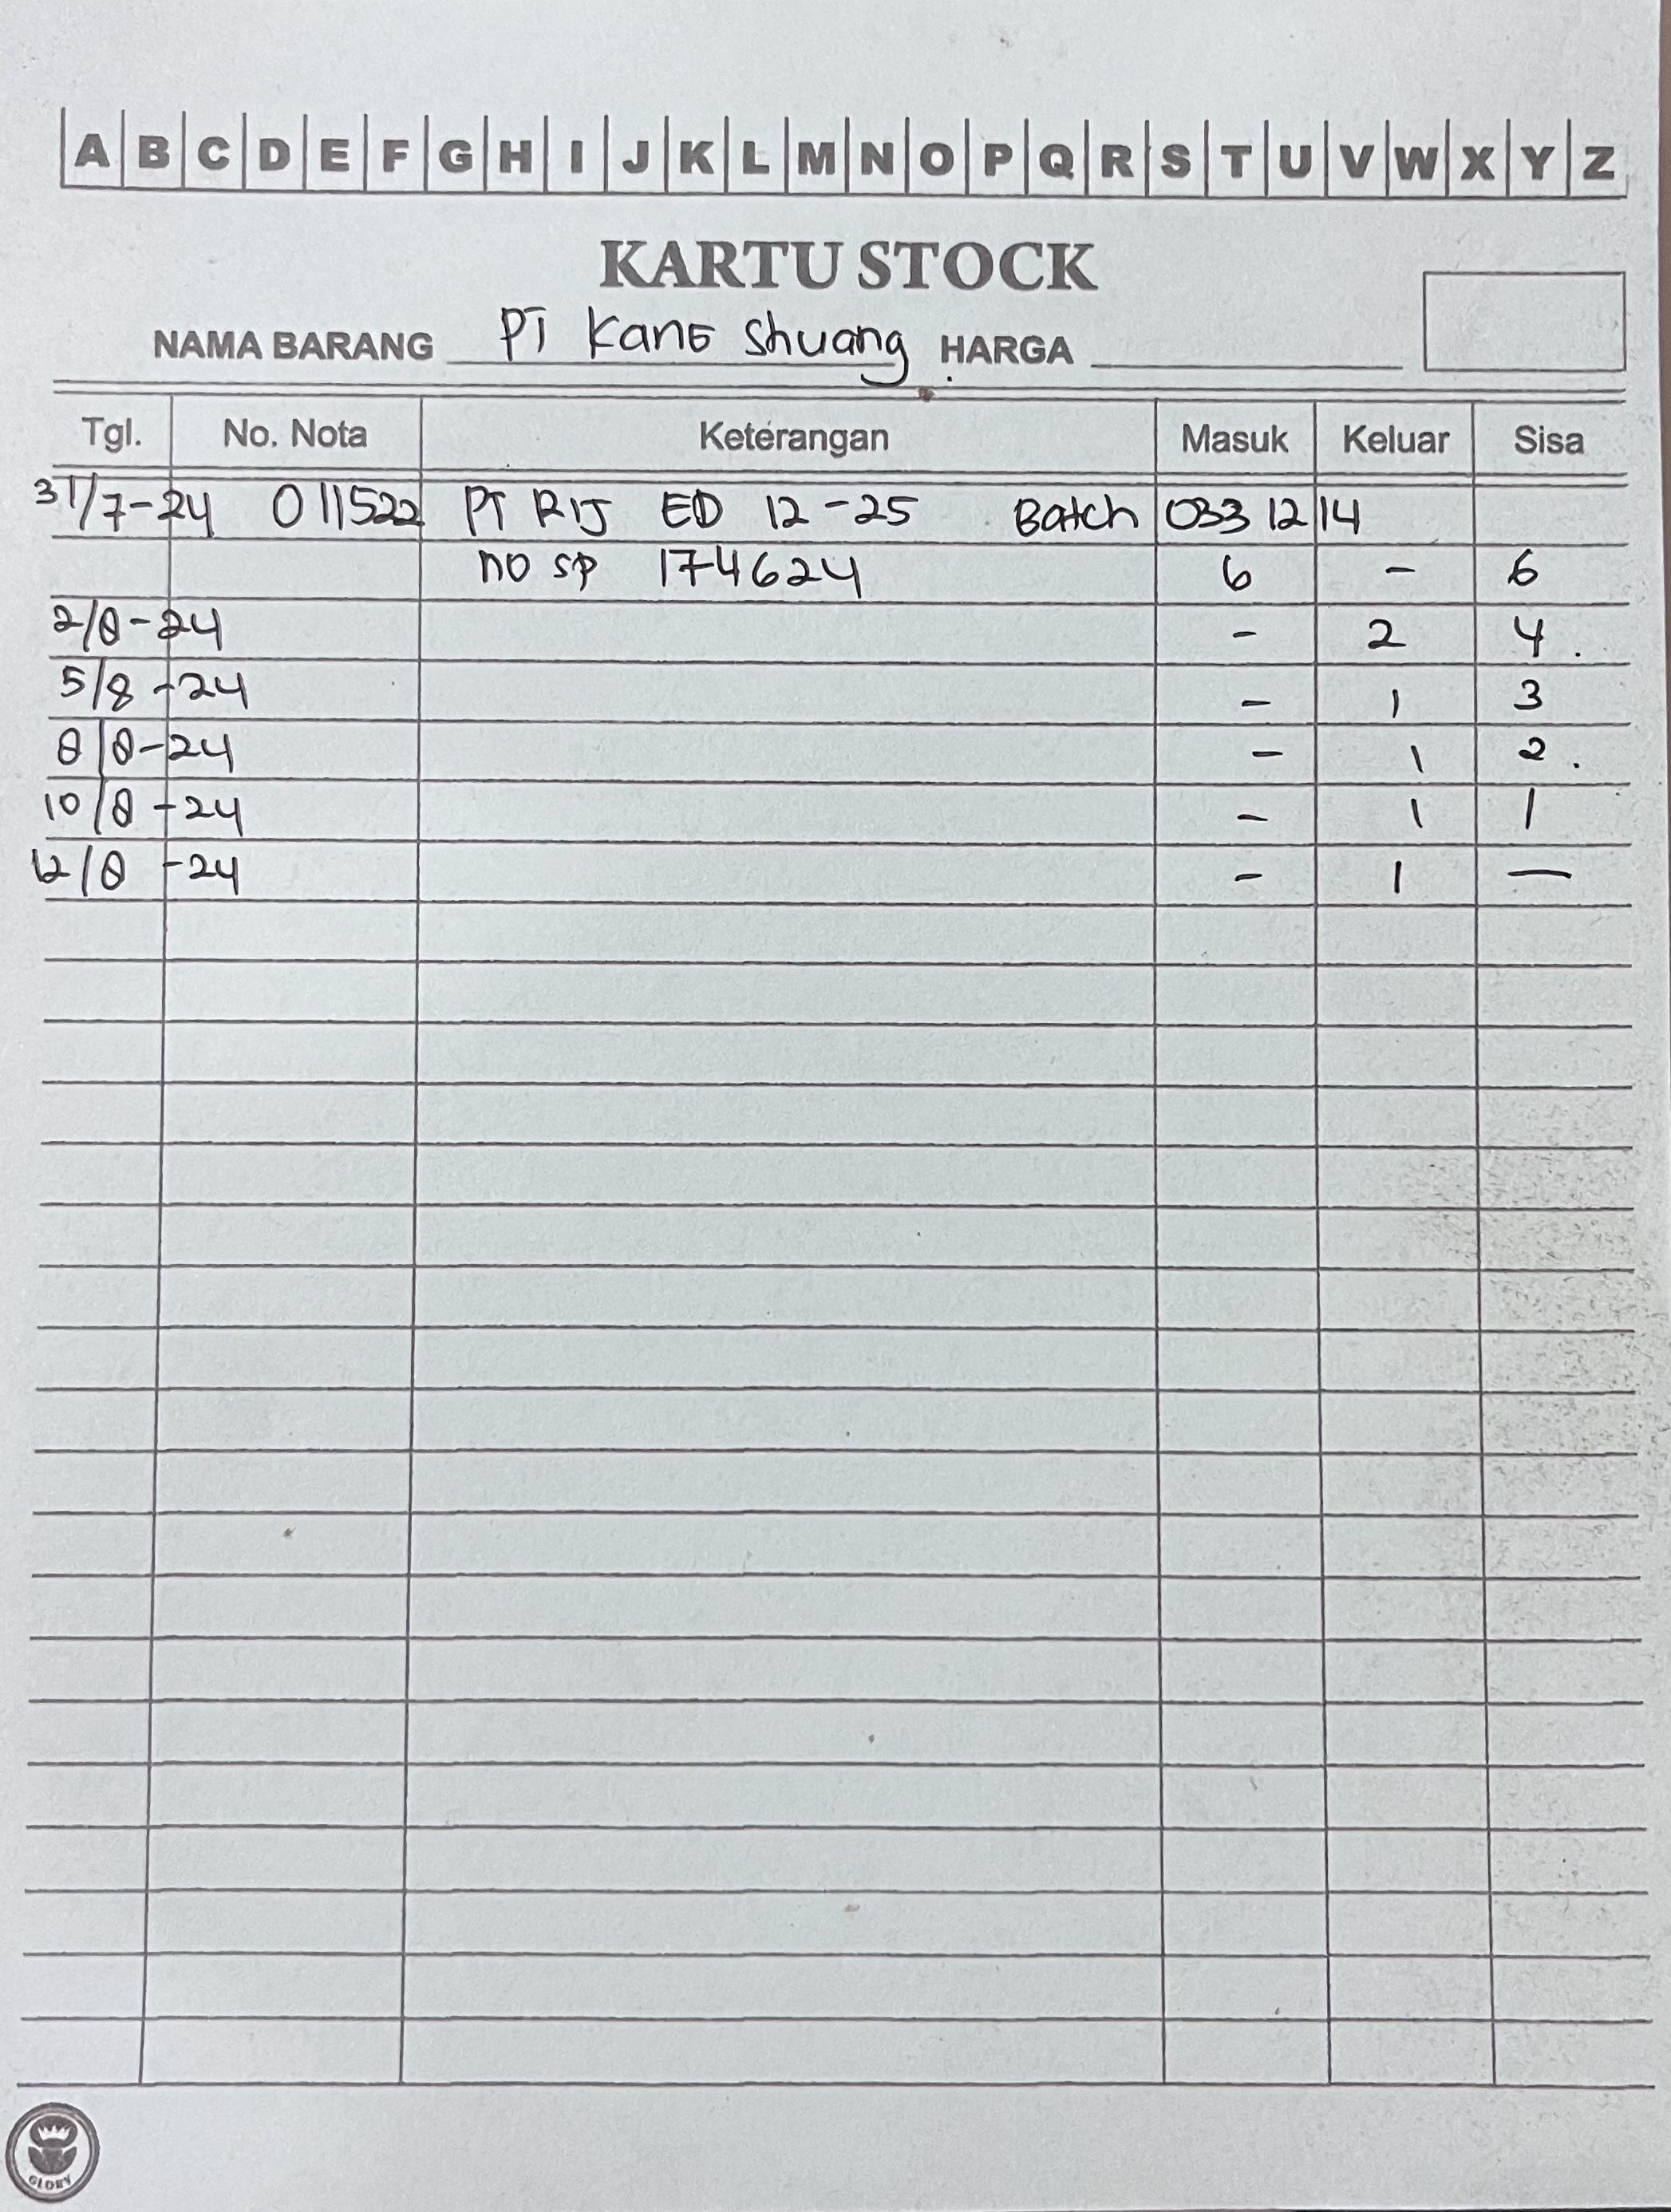 A B C D E F G H I J K L M N O P Q R S T U V W X Y Z
KARTU STOCK
NAMA BARANG PI Kang Shuang HARGA
Tgl. No. Nota Keterangan Masuk Keluar Sisa
31/7-24 011522 PT RIJ ED 12-25 Batch 0331214
no sp 174624 6 - 6
2/8-24 - 2 4.
5/8-24 - 1 3
8/8-24 - 1 2.
10/8-24 - 1 1
12/8-24 - 1 —
GLORY